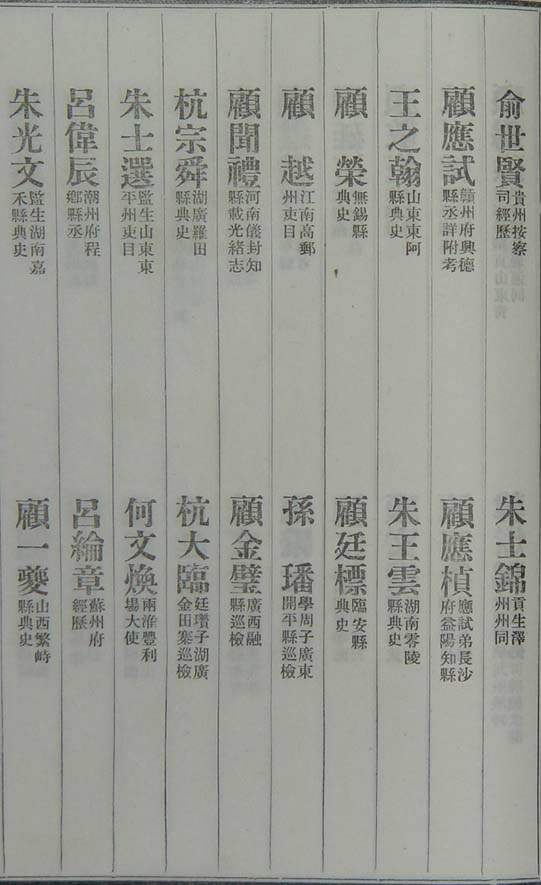 俞世賢 貴州按察司經歷
朱士錦 貢生澤州州同
顧應試 贛州府興德縣丞詳附考
顧應楨 應試弟長沙府益陽知縣
王之翰 山東東阿縣典史
朱王雲 湖南零陵縣典史
顧榮 無錫縣典史
顧廷標 臨安縣典史
顧越 江南高郵州吏目
孫璠 學周子廣東開平縣巡檢
顧聞禮 河南儀封知縣載光緒志
顧金璧 廣西融縣巡檢
杭宗舜 湖廣羅田縣典史
杭大臨 廷瓚子湖廣金田寨巡檢
朱士選 監生山東東平州吏目
何文煥 兩淮豐利場大使
呂偉辰 潮州府程鄉縣丞
呂綸章 蘇州府經歷
朱光文 監生湖南嘉禾縣典史
顧一夔 山西繁峙縣典史